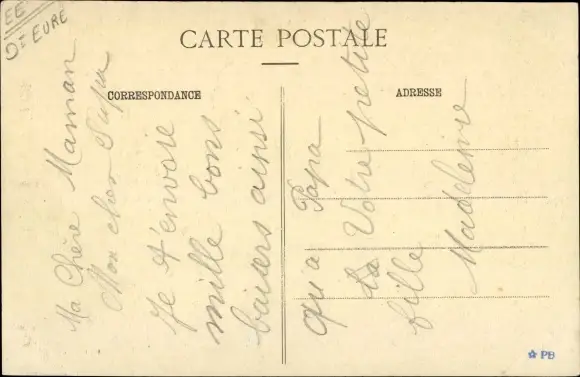 EE
Dt EURE
CARTE POSTALE
CORRESPONDANCE
ADRESSE
Ma Chère Maman
Mon cher
Je t'envoie
mille bons
baisers ainsi
qu'a Papa
La Votre petite
fille
Madeleine
PB